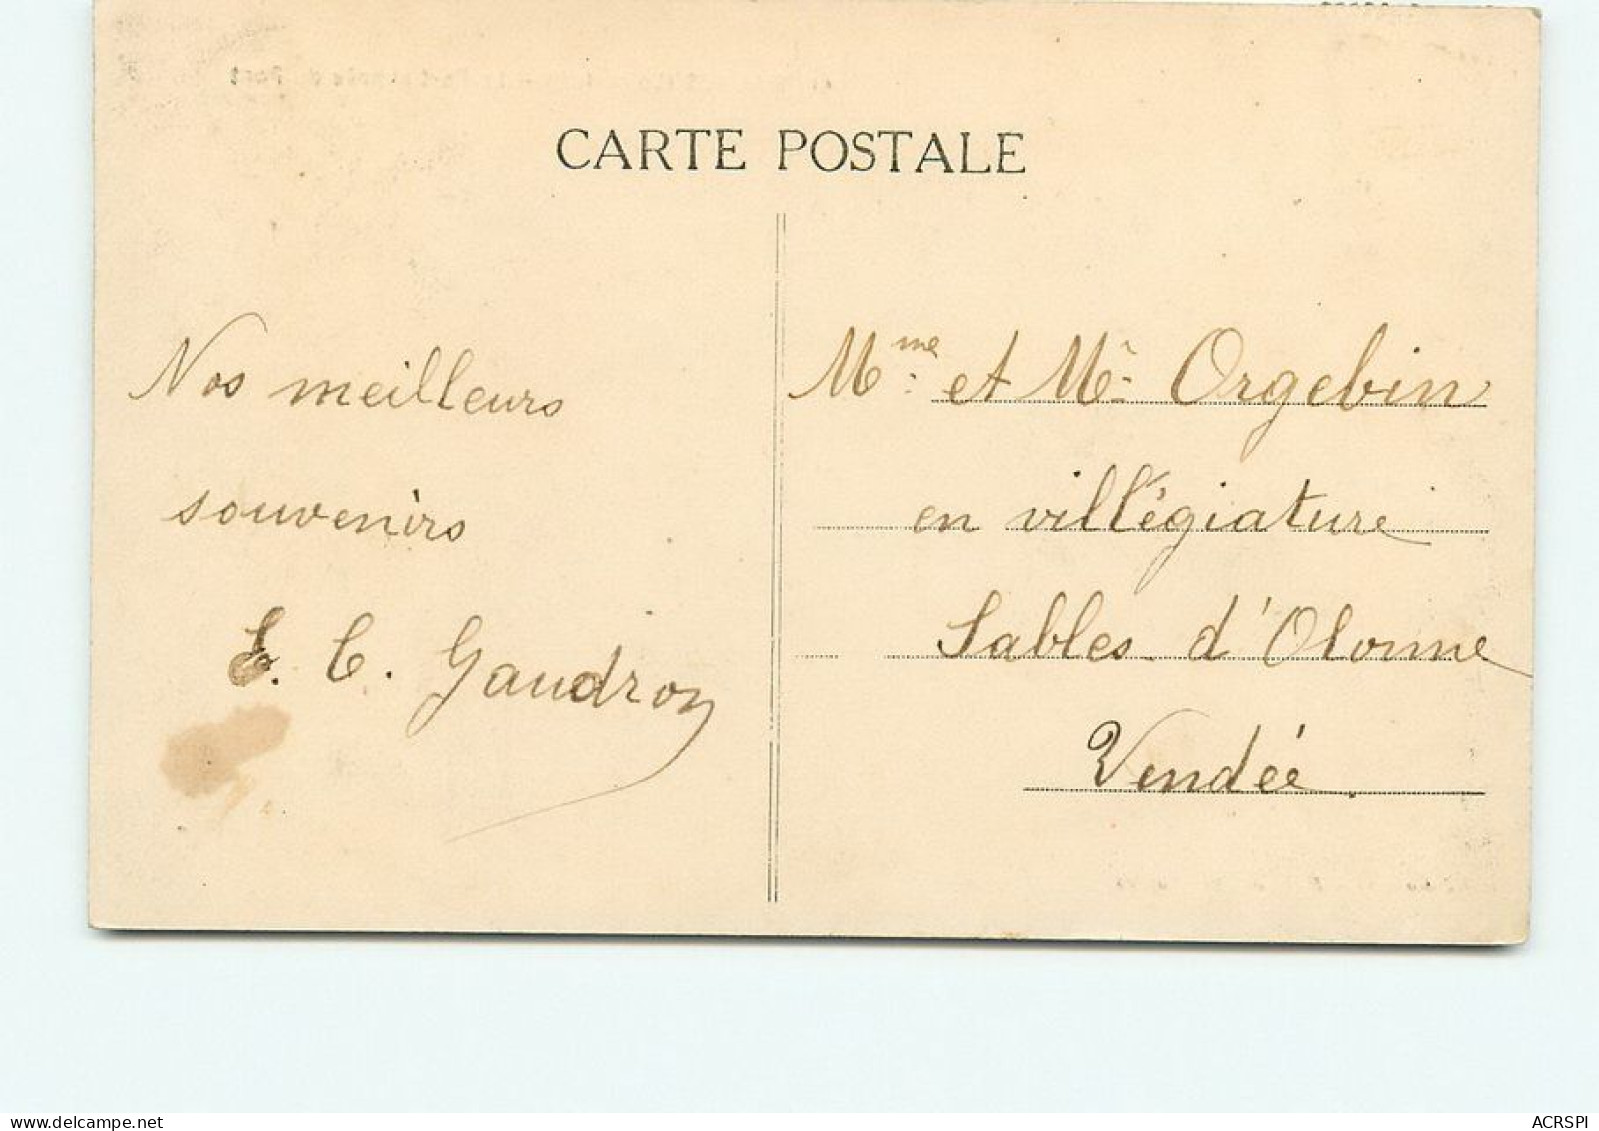 CARTE POSTALE
Nos meilleurs
souvenirs
E. C. Gaudron
Mme. et Mr. Orgebin
en villégiature
Sables d'Olonne
Vendée
ACRSPI